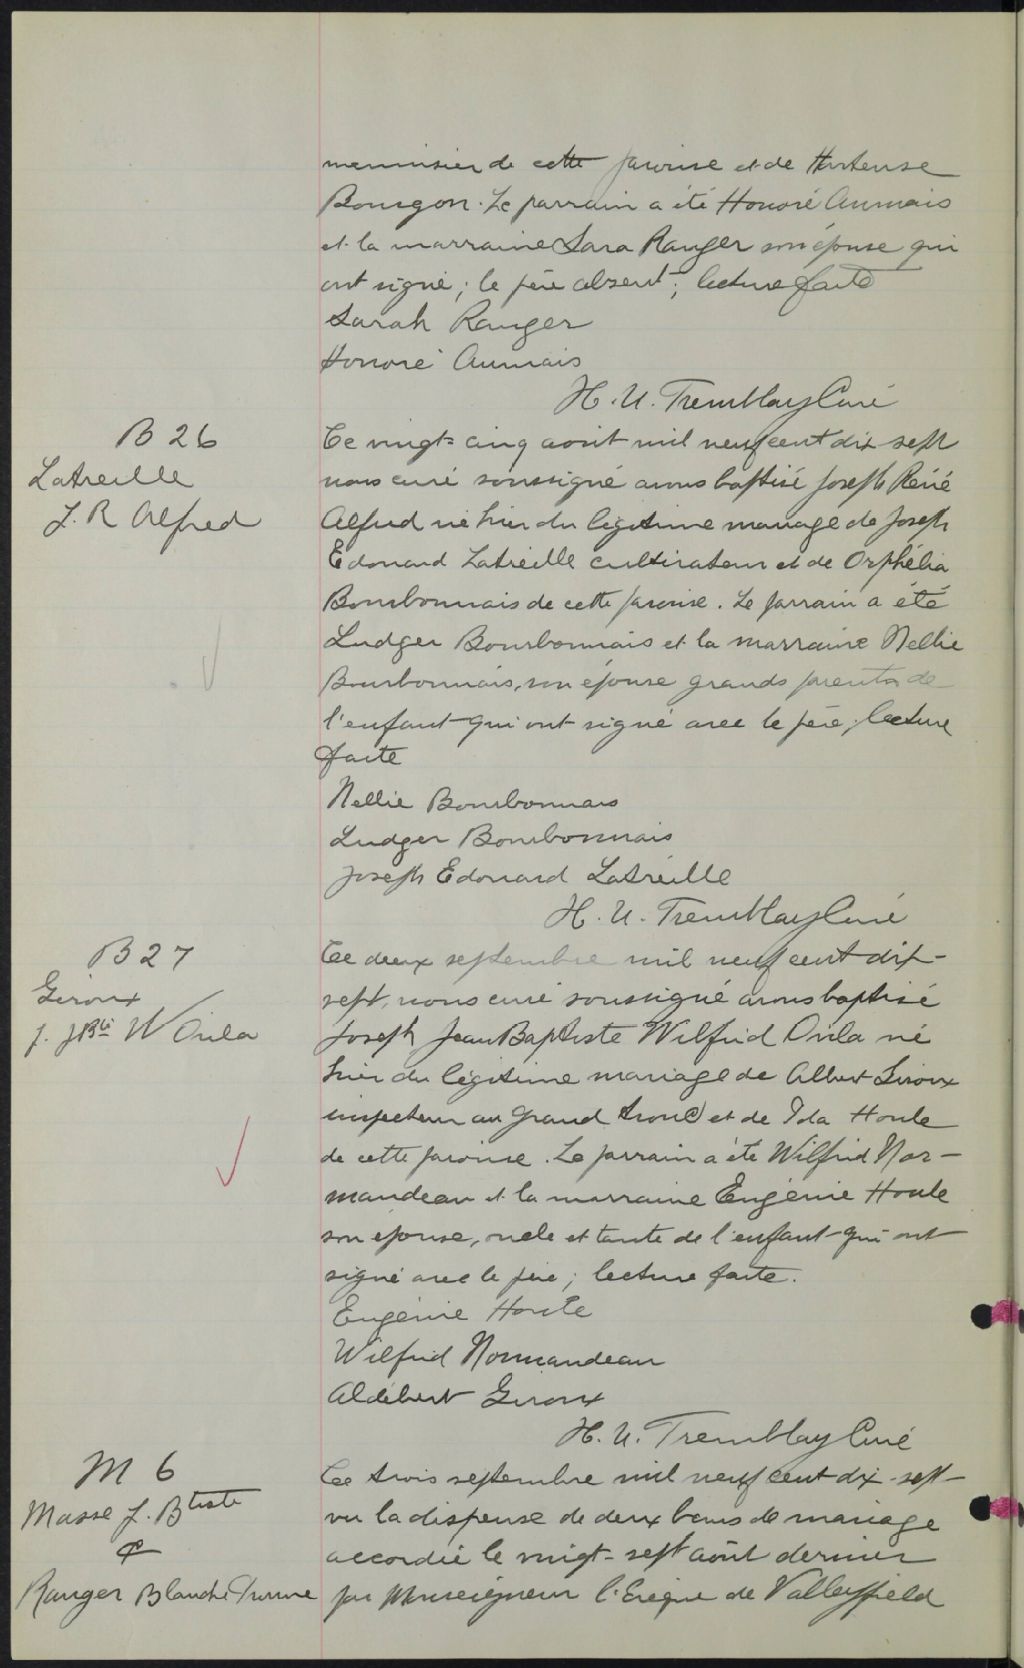 menuisier de cette paroisse et de Hortense
Bourgon. Le parrain a été Honoré Aumais
et la marraine Sara Ranger son épouse qui
ont signé; le père absent; lecture faite
Sarah Ranger
Honoré Aumais
H. U. Tremblay Curé
B 26
Latreille
J. R Alfred
Ce vingt-cinq août mil neuf cent dix sept
nous curé soussigné avons baptisé Joseph Réné
Alfred né hier du légitime mariage de Joseph
Edouard Latreille cultivateur et de Orphélia
Bourbonnais de cette paroisse. Le parrain a été
Ludger Bourbonnais et la marraine Nellie
Bourbonnais, son épouse grands parents de
l'enfant qui ont signé avec le père; lecture
faite
Nellie Bourbonnais
Ludger Bourbonnais
Joseph Edouard Latreille
H. U. Tremblay Curé
B 27
Giroux
J. JBte W Ovila
Ce deux septembre mil neuf cent dix-
sept, nous curé soussigné avons baptisé
Joseph Jean Baptiste Wilfrid Ovila né
hier du légitime mariage de Albert Giroux
inspecteur au Grand Tronc et de Ida Houle
de cette paroisse. Le parrain a été Wilfrid Nor-
mandeau et la marraine Eugénie Houle
son épouse, oncle et tante de l'enfant qui ont
signé avec le père; lecture faite.
Eugénie Houle
Wilfrid Normandeau
Aldébert Giroux
H. U. Tremblay Curé
M 6
Masse J. Btiste
&
Ranger Blanche
Ce trois septembre mil neuf cent dix-sept
vu la dispense de deux bans de mariage
accordée le vingt-sept août dernier
par Monseigneur l'Evêque de Valleyfield